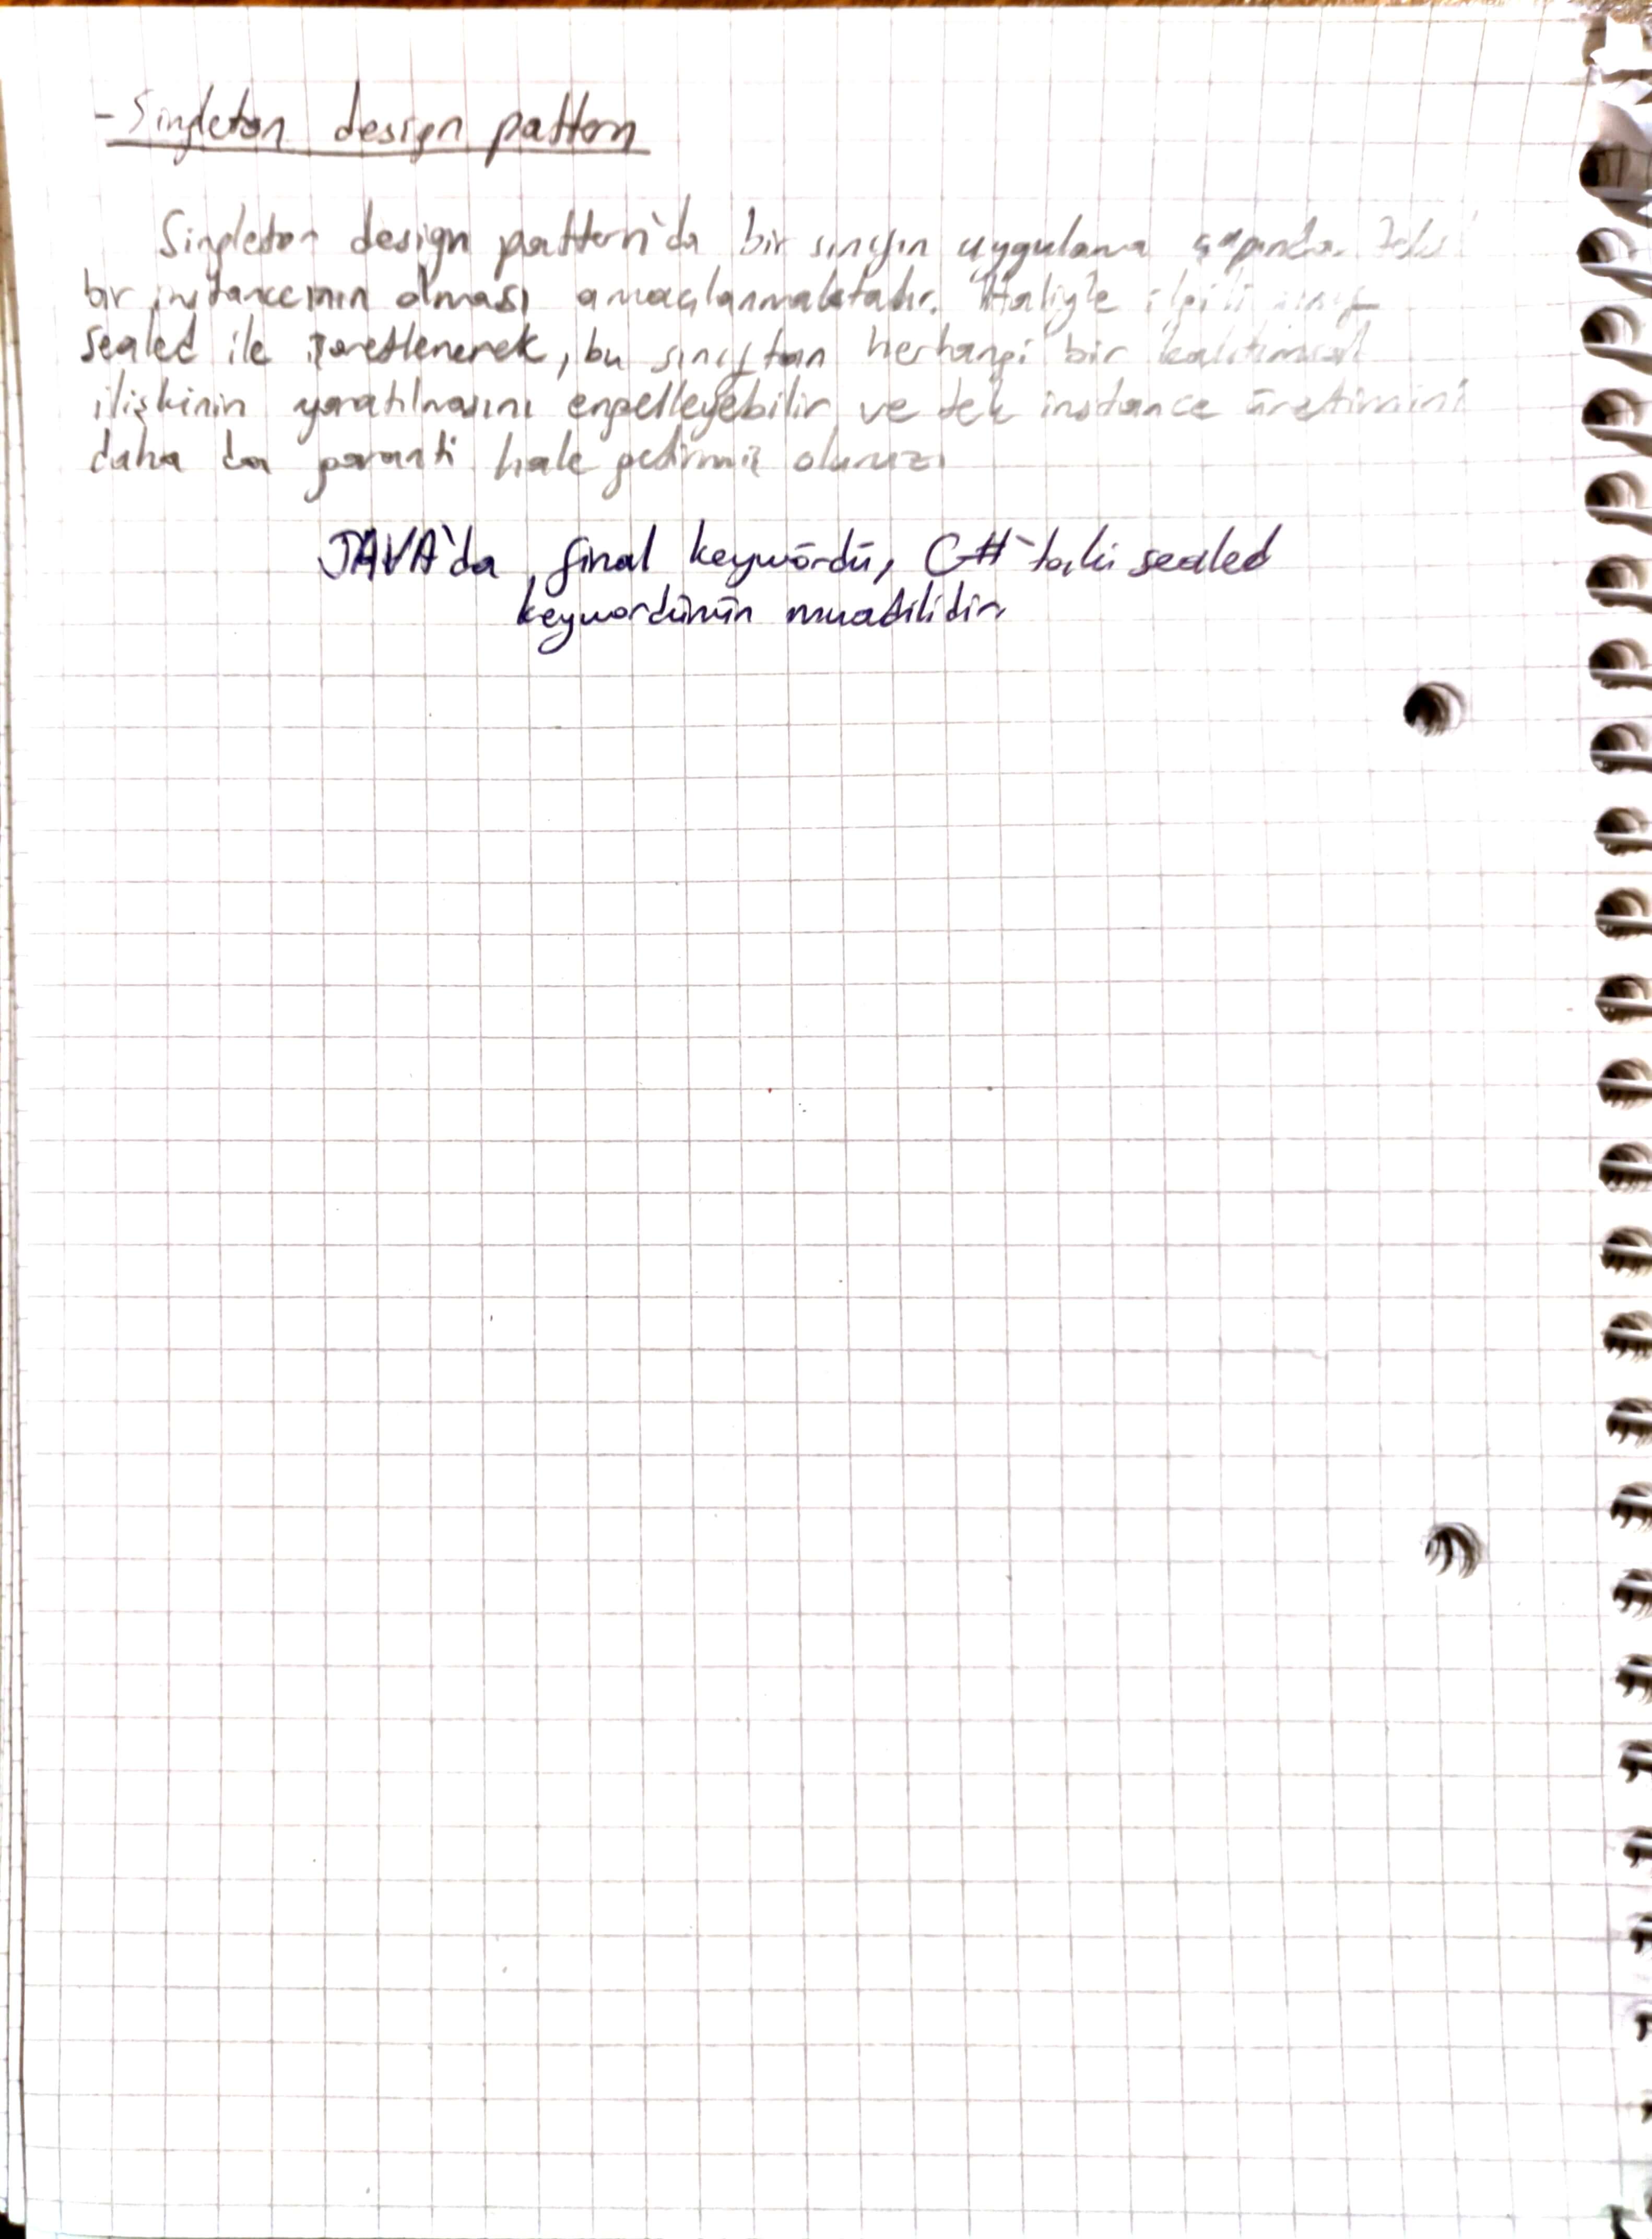 - Singleton design pattern
Singleton design pattern'da bir sınıfın uygulama çapında tek
bir instanceının olması amaçlanmaktadır. Haliyle ilgili sınıf
sealed ile işaretlenerek, bu sınıftan herhangi bir kalıtımsal
ilişkinin yaratılmasını engelleyebilir ve tek instance üretimini
daha da garanti hale getirmiş oluruz.
JAVA'da, final keywordü, C#'taki sealed
keywordünün muadilidir.